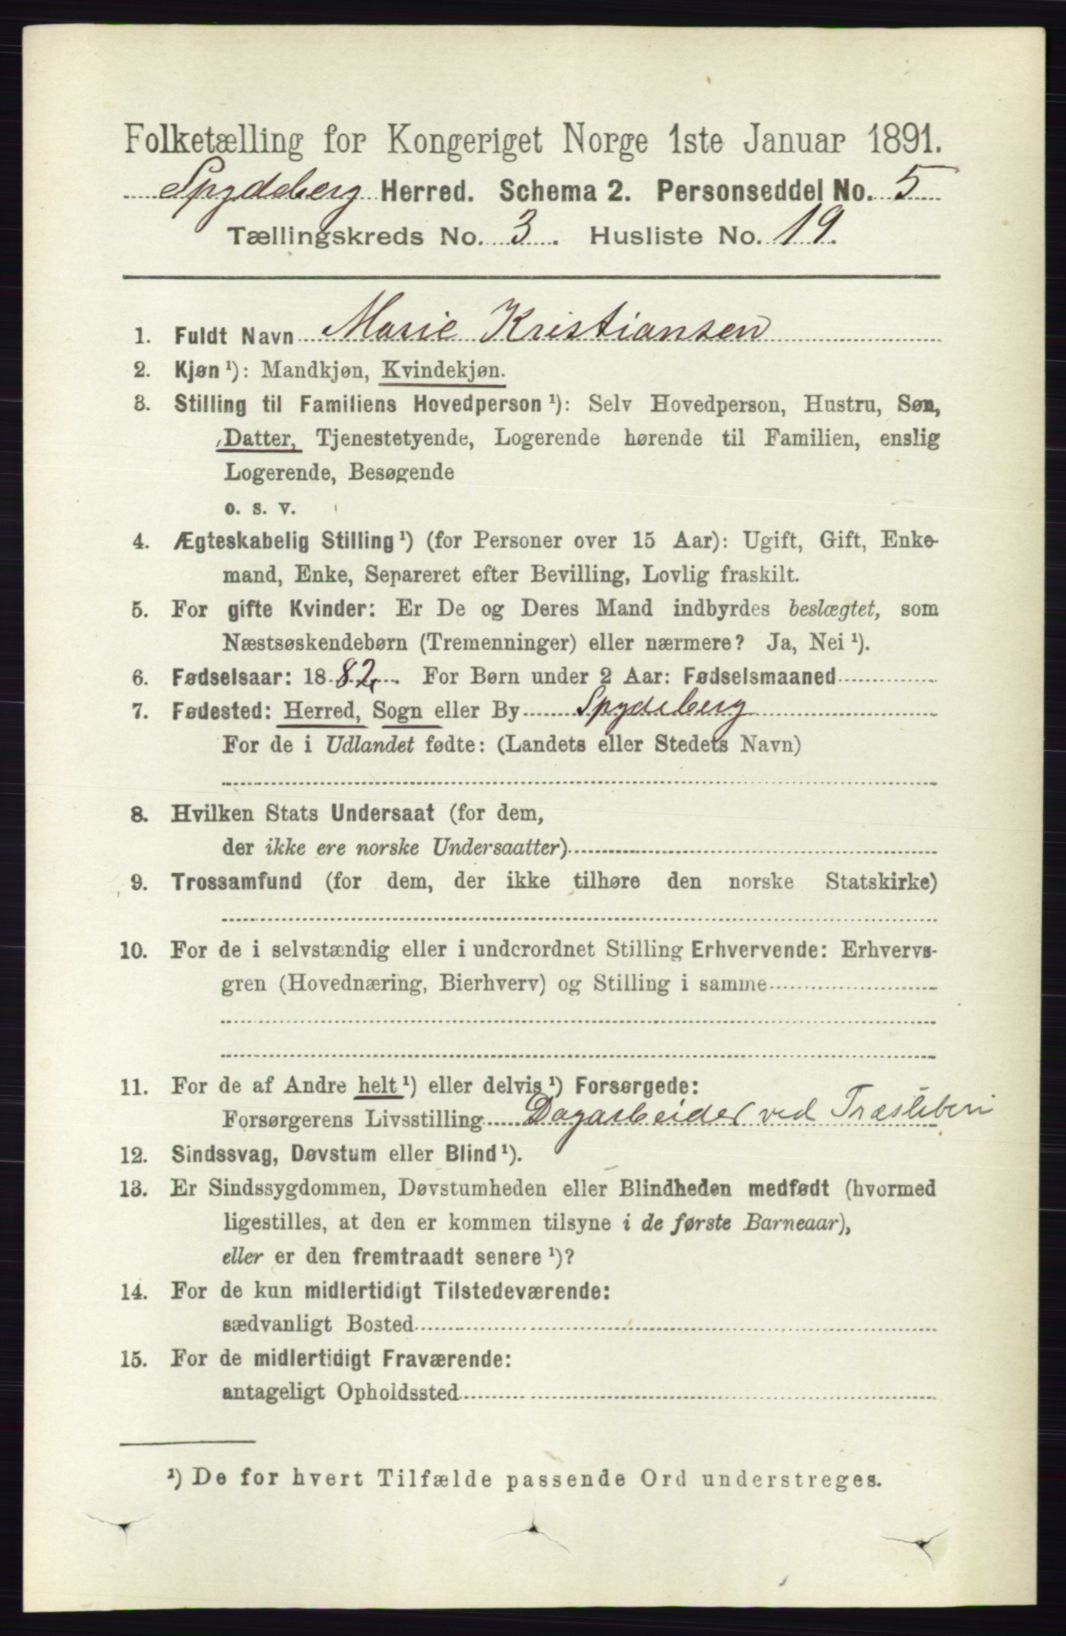 Folketælling for Kongeriget Norge 1ste Januar 1891.
Spydeberg Herred. Schema 2. Personseddel No. 5
Tællingskreds No. 3. Husliste No. 19.
1. Fuldt Navn Marie Kristiansen
2. Kjøn ¹): Mandkjøn, Kvindekjøn.
3. Stilling til Familiens Hovedperson ¹): Selv Hovedperson, Hustru, Søn,
Datter, Tjenestetyende, Logerende hørende til Familien, enslig
Logerende, Besøgende
o. s. v.
4. Ægteskabelig Stilling ¹) (for Personer over 15 Aar): Ugift, Gift, Enke-
mand, Enke, Separeret efter Bevilling, Lovlig fraskilt.
5. For gifte Kvinder: Er De og Deres Mand indbyrdes beslægtet, som
Næstsøskendebørn (Tremenninger) eller nærmere? Ja, Nei ¹).
6. Fødselsaar: 1882. For Børn under 2 Aar: Fødselsmaaned
7. Fødested: Herred, Sogn eller By Spydeberg
For de i Udlandet fødte: (Landets eller Stedets Navn)
8. Hvilken Stats Undersaat (for dem,
der ikke ere norske Undersaatter)
9. Trossamfund (for dem, der ikke tilhøre den norske Statskirke)
10. For de i selvstændig eller i underordnet Stilling Erhvervende: Erhvervs-
gren (Hovednæring, Bierhverv) og Stilling i samme
11. For de af Andre helt ¹) eller delvis ¹) Forsørgede:
Forsørgerens Livsstilling Dagarbeider ved Træsliberi
12. Sindssvag, Døvstum eller Blind ¹).
13. Er Sindssygdommen, Døvstumheden eller Blindheden medfødt (hvormed
ligestilles, at den er kommen tilsyne i de første Barneaar),
eller er den fremtraadt senere ¹)?
14. For de kun midlertidigt Tilstedeværende:
sædvanligt Bosted
15. For de midlertidigt Fraværende:
antageligt Opholdssted
¹) De for hvert Tilfælde passende Ord understreges.